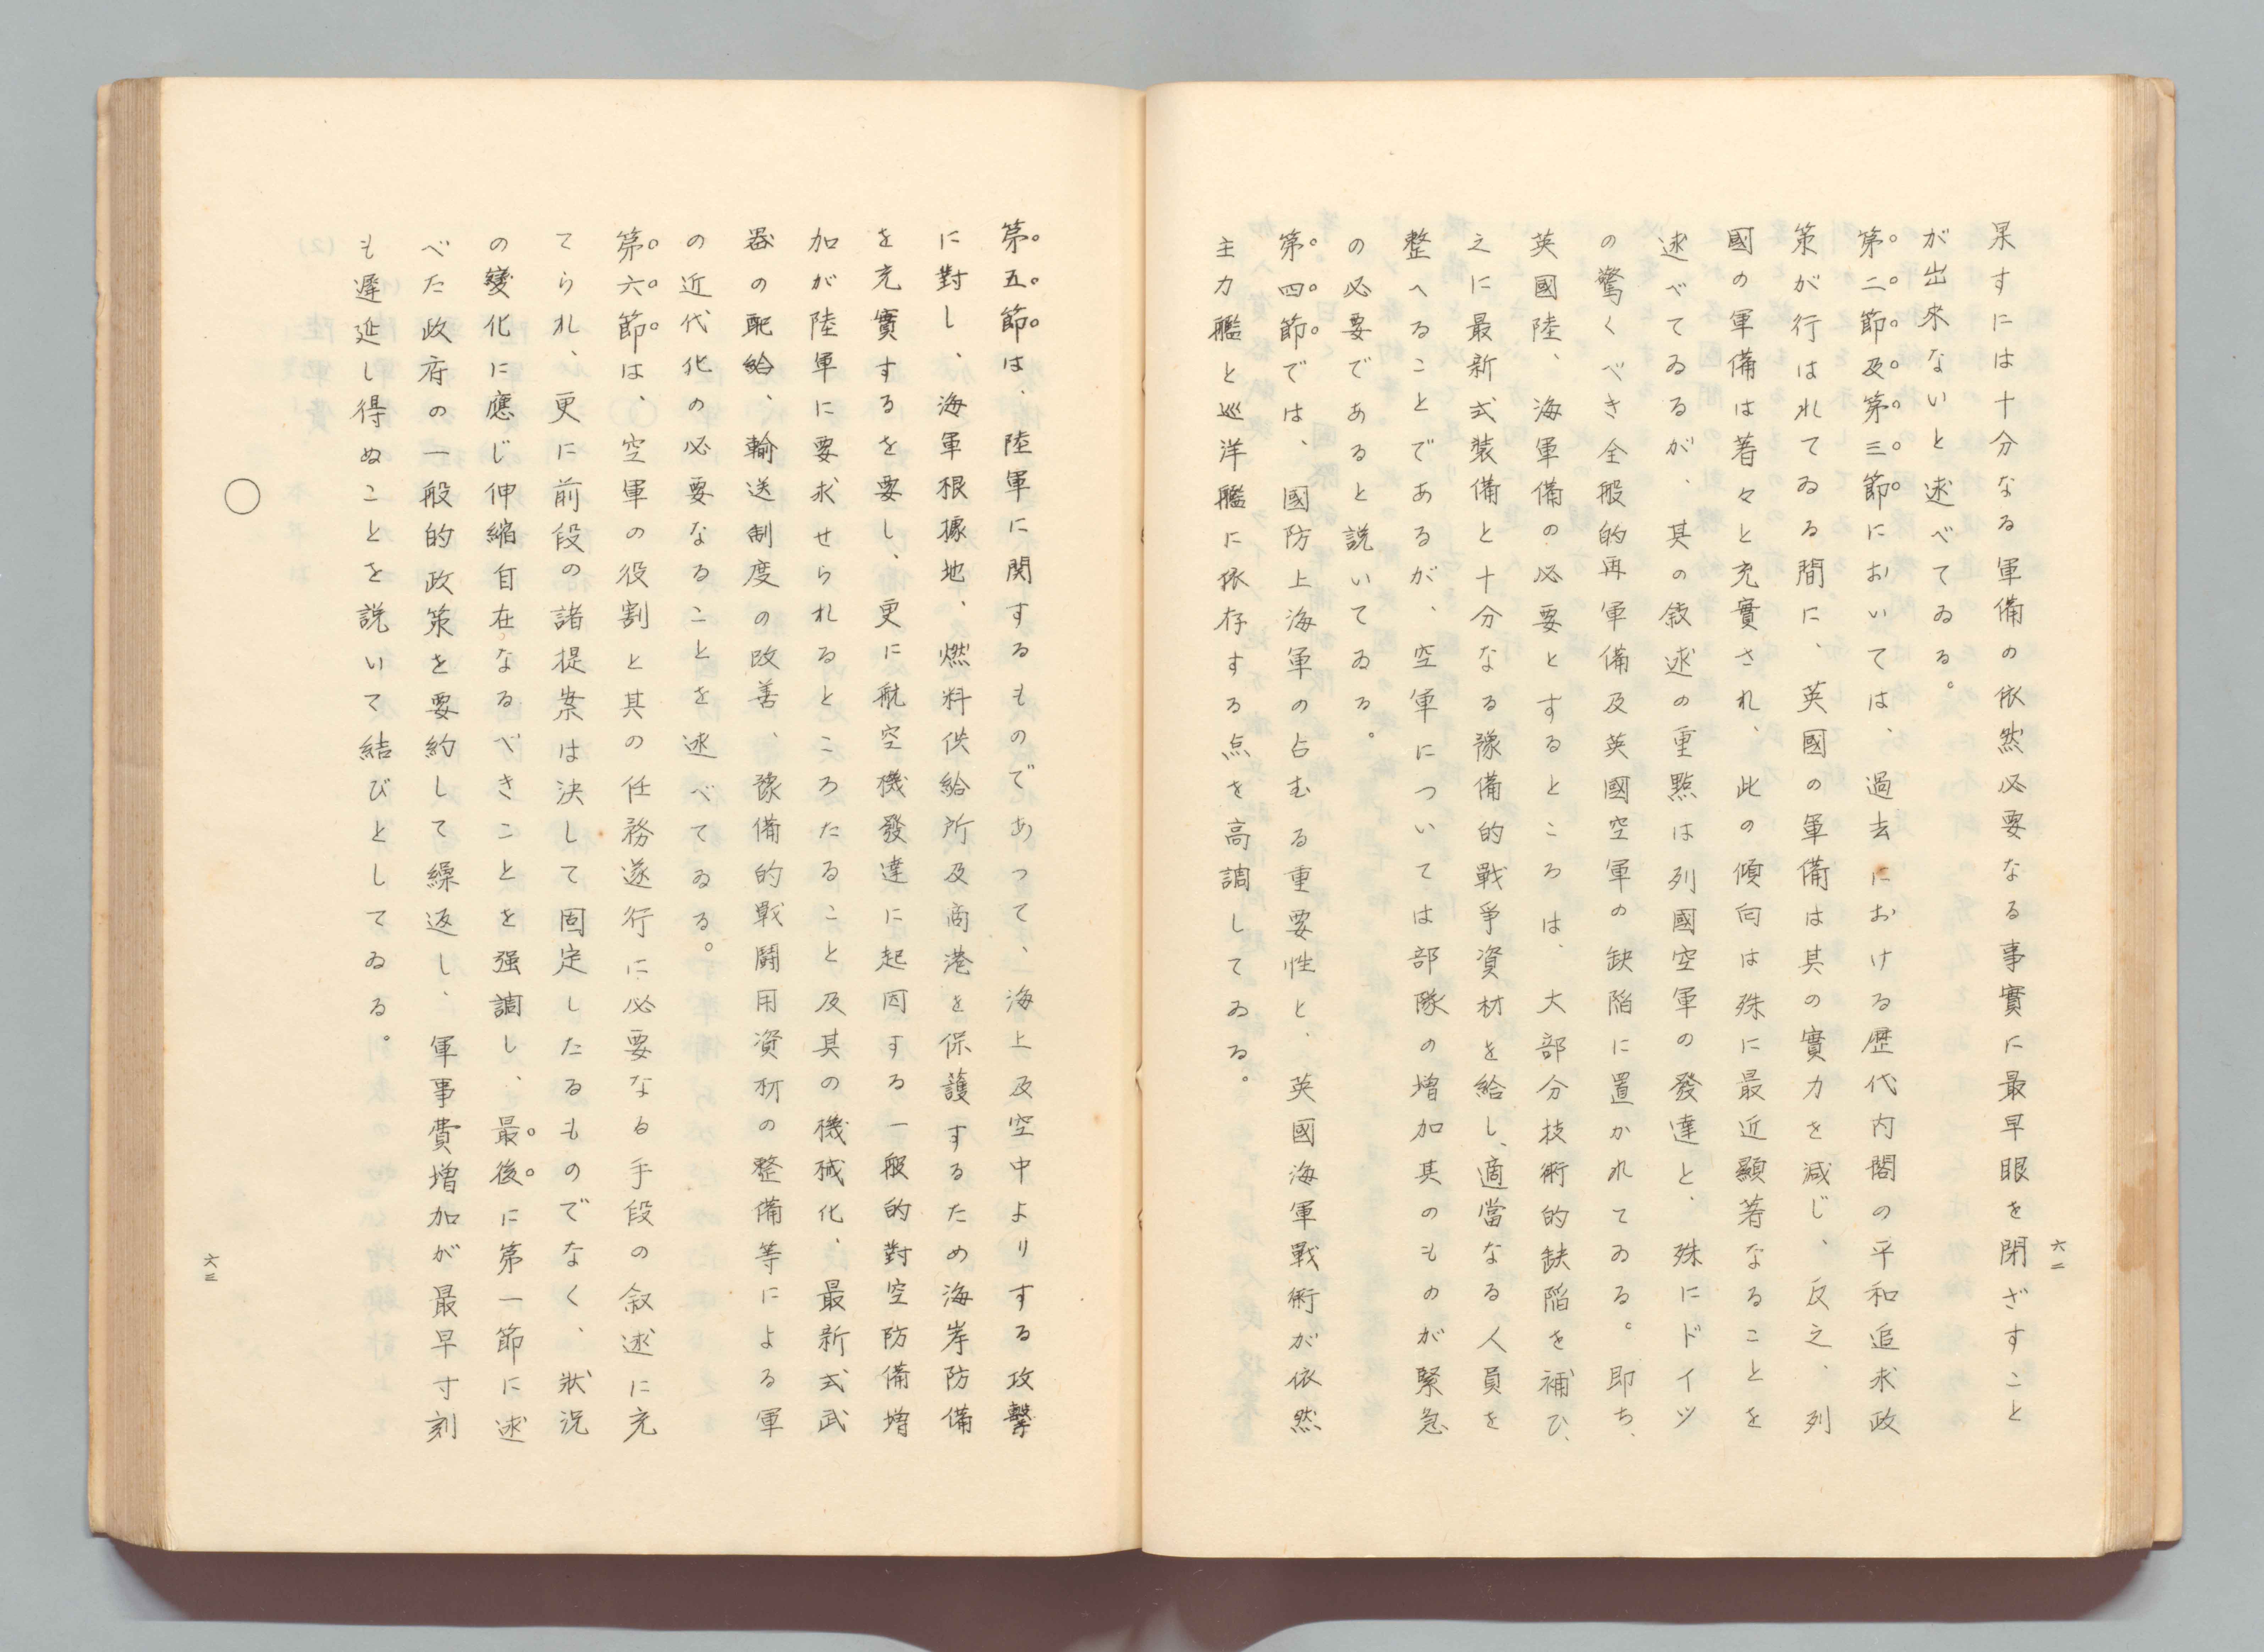 六二
果すには十分なる軍備の依然必要なる事實に最早眼を閉ざすこと
が出來ないと述べてゐる。
第二節及第三節においては、過去における歴代内閣の平和追求政
策が行はれてゐる間に、英國の軍備は其の實力を減じ、反之、列
國の軍備は着々と充實され、此の傾向は殊に最近顯著なることを
述べてゐるが、其の敍述の重點は列國空軍の發達と、殊にドイツ
の驚くべき全般的再軍備及英國空軍の缺陥に置かれてゐる。即ち、
英國陸、海軍備の必要とするところは、大部分技術的缺陥を補ひ、
之に最新式装備と十分なる豫備的戰爭資材を給し、適當なる人員を
整へることであるが、空軍については部隊の増加其のものが緊急
の必要であると説いてゐる。
第四節では、國防上海軍の占むる重要性と、英國海軍戰術が依然
主力艦と巡洋艦に依存する点を高調してゐる。
第五節は、陸軍に関するものであつて、海上及空中よりする攻擊
に對し、海軍根據地、燃料供給所及商港を保護するため海岸防備
を充實するを要し、更に航空機發達に起因する一般的對空防備増
加が陸軍に要求せられるところたること及其の機械化、最新式武
器の配給、輸送制度の改善、豫備的戰鬪用資材の整備等による軍
の近代化の必要なることを述べてゐる。
第六節は、空軍の役割と其の任務遂行に必要なる手段の叙述に充
てられ、更に前段の諸提案は決して固定したるものでなく、狀況
の變化に應じ伸縮自在なるべきことを强調し、最後に第一節に述
べた政府の一般的政策を要約して繰返し、軍事費増加が最早寸刻
も遲延し得ぬことを説いて結びとしてゐる。
○
六三